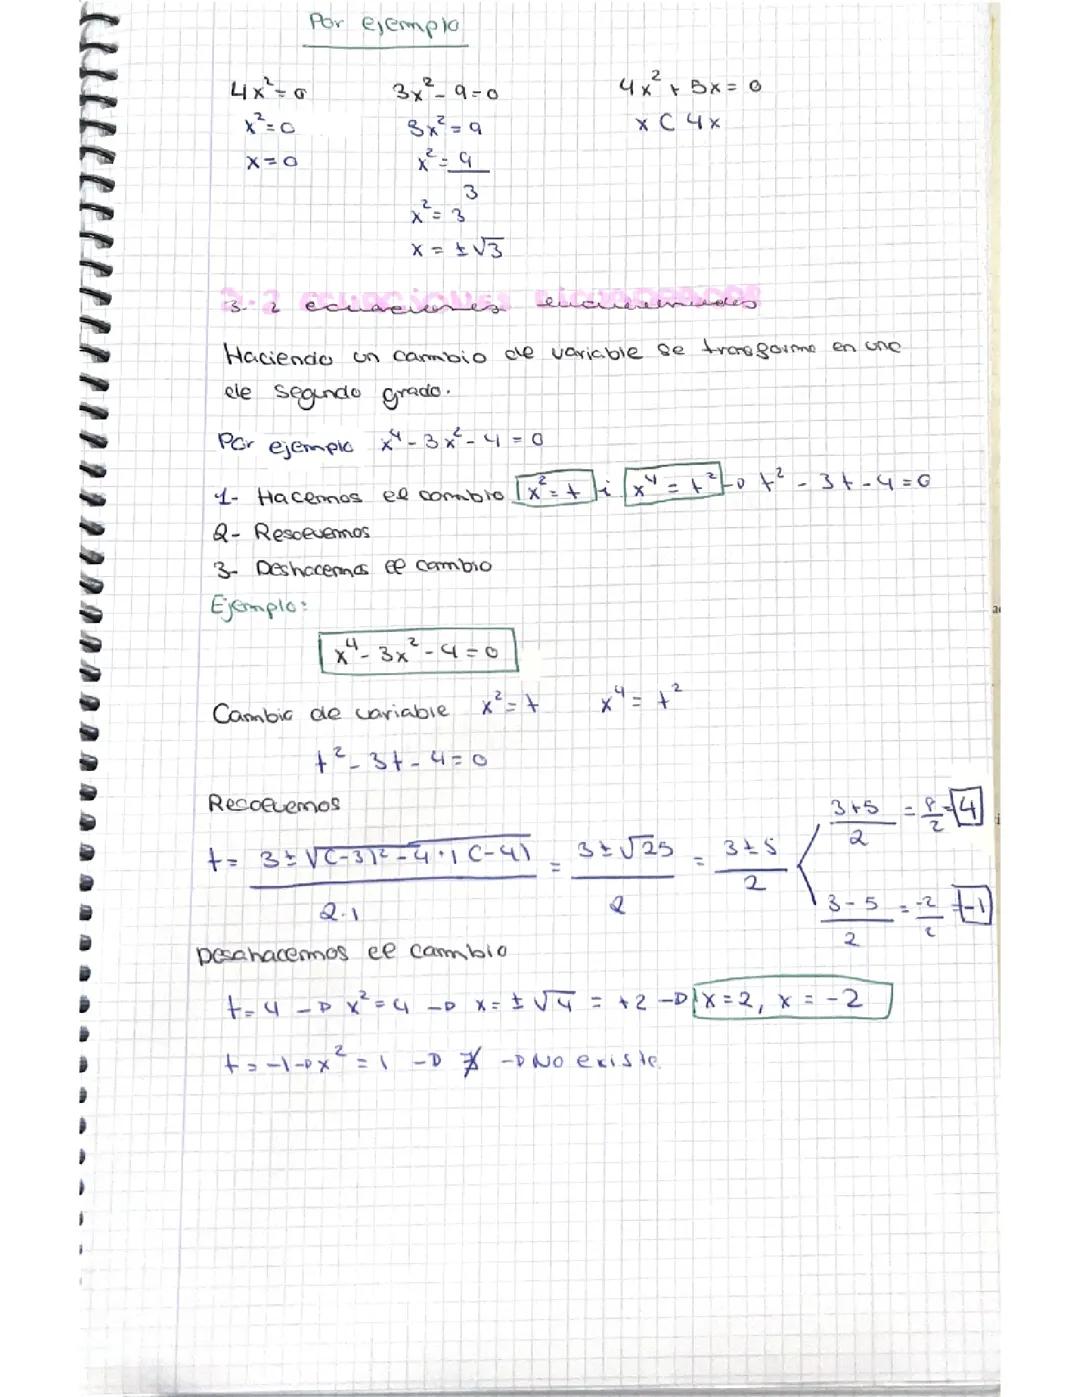 Por ejemplo
4x² = 0
x² = 0
x = 0
3x² - 9 = 0
3x² = 9
x² = 9/3
x² = 3
x = ±√3
4x² + 5x = 0
x ( 4x
3.2 ecuaciones
Haciendo un cambio de variable se transforma en una
de segundo grado.
Por ejemplo x⁴ - 3x² - 4 = 0
1- Hacemos el cambio x² = t i x⁴ = t² → t² - 3t - 4 = 0
2- Resolvemos
3- Deshacemos el cambio
Ejemplo:
x⁴ - 3x² - 4 = 0
Cambio de variable x² = t x⁴ = t²
t² - 3t - 4 = 0
Resolvemos
t = 3 ± √(-3)² - 4·1(-4) / 2·1 = 3 ± √25 / 2 = 3 ± 5 / 2
3+5 / 2 = 8/2 = 4
3-5 / 2 = -2/2 = -1
Desahacemos el cambio
t = 4 → x² = 4 → x = ±√4 = ±2 → x = 2, x = -2
t = -1 → x² = 1 → ∄ → No existe.